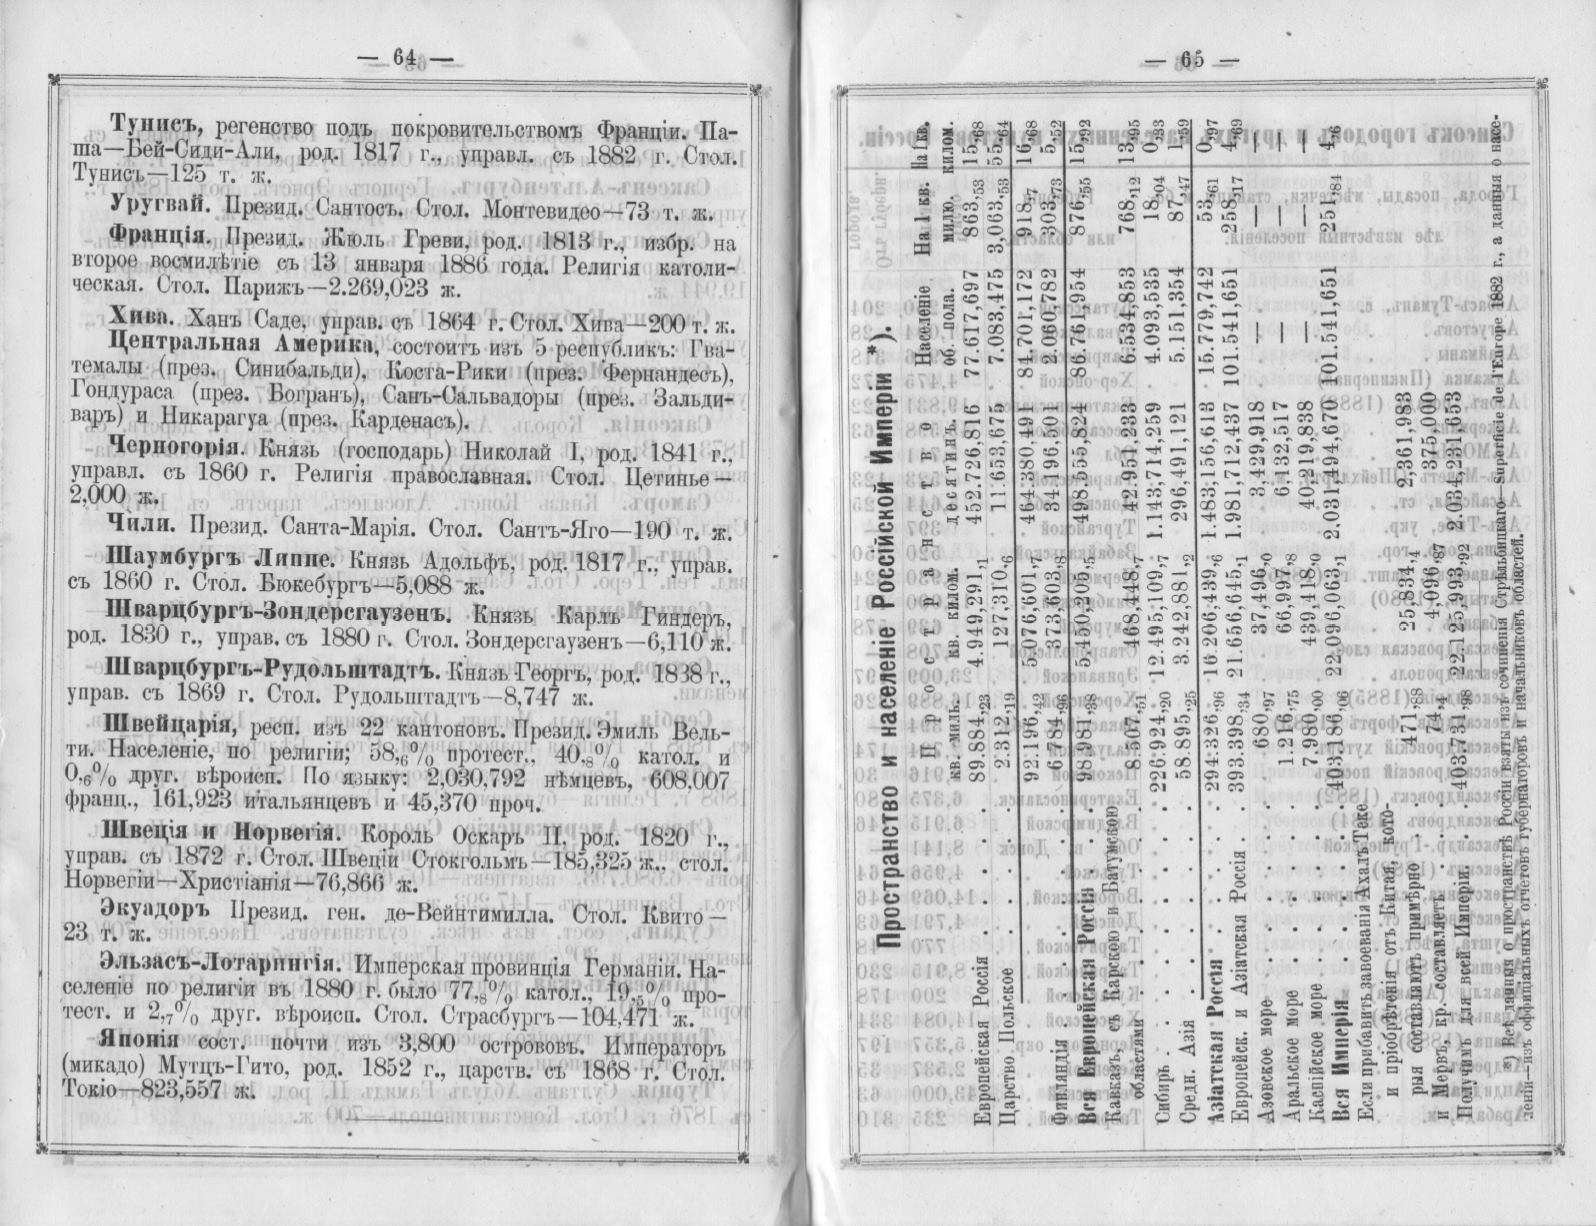 — 64 —
Тунисъ, регенство подъ покровительствомъ Франціи. Па-
ша—Бей-Сиди-Али, род. 1817 г., управл. съ 1882 г. Стол.
Тунисъ—125 т. ж.
Уругвай. Презид. Сантосъ. Стол. Монтевидео—73 т. ж.
Франція. Презид. Жюль Греви, род. 1813 г., избр. на
второе восмилѣтіе съ 13 января 1886 года. Религія католи-
ческая. Стол. Парижъ—2.269,023 ж.
Хива. Ханъ Саде, управ. съ 1864 г. Стол. Хива—200 т. ж.
Центральная Америка, состоитъ изъ 5 республикъ: Гва-
темалы (през. Синибальди), Коста-Рики (през. Фернандесъ),
Гондураса (през. Богранъ), Санъ-Сальвадоры (през. Зальди-
варъ) и Никарагуа (през. Карденасъ).
Черногорія. Князь (господарь) Николай I, род. 1841 г.,
управл. съ 1860 г. Религія православная. Стол. Цетинье—
2,000 ж.
Чили. Презид. Санта-Марія. Стол. Сантъ-Яго—190 т. ж.
Шаумбургъ Липпе. Князь Адольфъ, род. 1817 г., управ.
съ 1860 г. Стол. Бюкебургъ—5,088 ж.
Шварцбургъ-Зондерсгаузенъ. Князь Карлъ Гиндеръ,
род. 1830 г., управ. съ 1880 г. Стол. Зондерсгаузенъ—6,110 ж.
Шварцбургъ-Рудольштадтъ. Князь Георгъ, род. 1838 г.,
управ. съ 1869 г. Стол. Рудольштадтъ—8,747 ж.
Швейцарія, респ. изъ 22 кантоновъ. Презид. Эмиль Вель-
ти. Населеніе, по религіи; 58,6% протест., 40,8% катол. и
0,6% друг. вѣроисп. По языку: 2,030,792 нѣмцевъ, 608,007
франц., 161,923 итальянцевъ и 45,370 проч.
Швеція и Норвегія. Король Оскаръ II, род. 1820 г.,
управ. съ 1872 г. Стол. Швеціи Стокгольмъ—185,325 ж., стол.
Норвегіи—Христіанія—76,866 ж.
Экуадоръ Презид. ген. де-Вейнтимилла. Стол. Квито—
23 т. ж.
Эльзасъ-Лотарингія. Имперская провинція Германіи. На-
селеніе по религіи въ 1880 г. было 77,8% катол., 19,5% про-
тест. и 2,7% друг. вѣроисп. Стол. Страсбургъ—104,471 ж.
Японія сост. почти изъ 3,800 острововъ. Императоръ
(микадо) Мутцъ-Гито, род. 1852 г., царств. съ 1868 г. Стол.
Токіо—823,557 ж.
— 65 —
Пространство и населеніе Россійской Имперіи *).
Пространство Населеніе На 1 кв. На 1 кв.
кв. миль. кв. килом. десятинъ. об. пола. милю. килом.
Европейская Россія . . . . 89.884,23 4.949,291,1 452.726.816 77.617,697 863,53 15,68
Царство Польское . . . . 2.312,19 127.310,6 11.653,675 7.083,475 3,063,53 55,64
92.196,42 5.076,601,7 464.380,491 84.701,172 918,7 16,68
Финляндія . . . . 6.784,96 373,603,8 34.196,501 2.060,782 303,73 5,52
Вся Европейская Россія 98.981,38 5.450,205,5 498.555,824 86.761,954 876,55 15,92
Кавказъ, съ Карскою и Батумскою
областями . . . . 8.507,51 468,448,7 42.951,233 6.534,853 768,12 13,95
Сибирь . . . . 226.924,20 12.495,109,7 1.143,714,259 4.093,535 18,04 0,33
Средн. Азія . . . . 58.895,25 3.242,881,2 296,491,121 5.151,354 87,47 1,59
Азіатская Россія . . . 294.326,96 16.206,439,6 1.483,156,613 15.779,742 53,61 0,97
Европейск. и Азіатская Россія . . 393.398,34 21.656,645,1 1.981,712,437 101.541,651 258,17 4,69
Азовское море . . . . 680,97 37,496,0 3,429,918 — — —
Аральское море . . . . 1.216,75 66,997,8 6,132,517 — — —
Каспійское море . . . . 7,980,00 439,418,0 40,219,838 — — —
Вся Имперія . . . . 403,186,06 22,096,063,1 2.031,494,670 101.541,651 251,84 4,6
Если прибавить завоеванія Ахалъ Теке
и пріобрѣтенія отъ Китая, кото-
рыя составляютъ примѣрно . . 471,88 25,834,4 2,361,983
и Мервъ, кр. составляетъ . . 74,4 4,096,87 375,000
Получимъ для всей Имперіи. . . 403.731,98 22.125,993,92 2.034,231,653
*) Всѣ данныя о пространствѣ Россіи взяты изъ сочиненія Стрѣльбицкаго—Superficie de l'Europe 1882 г., а данныя о насе-
леніи—изъ оффиціальныхъ отчетовъ губернаторовъ и начальниковъ областей.